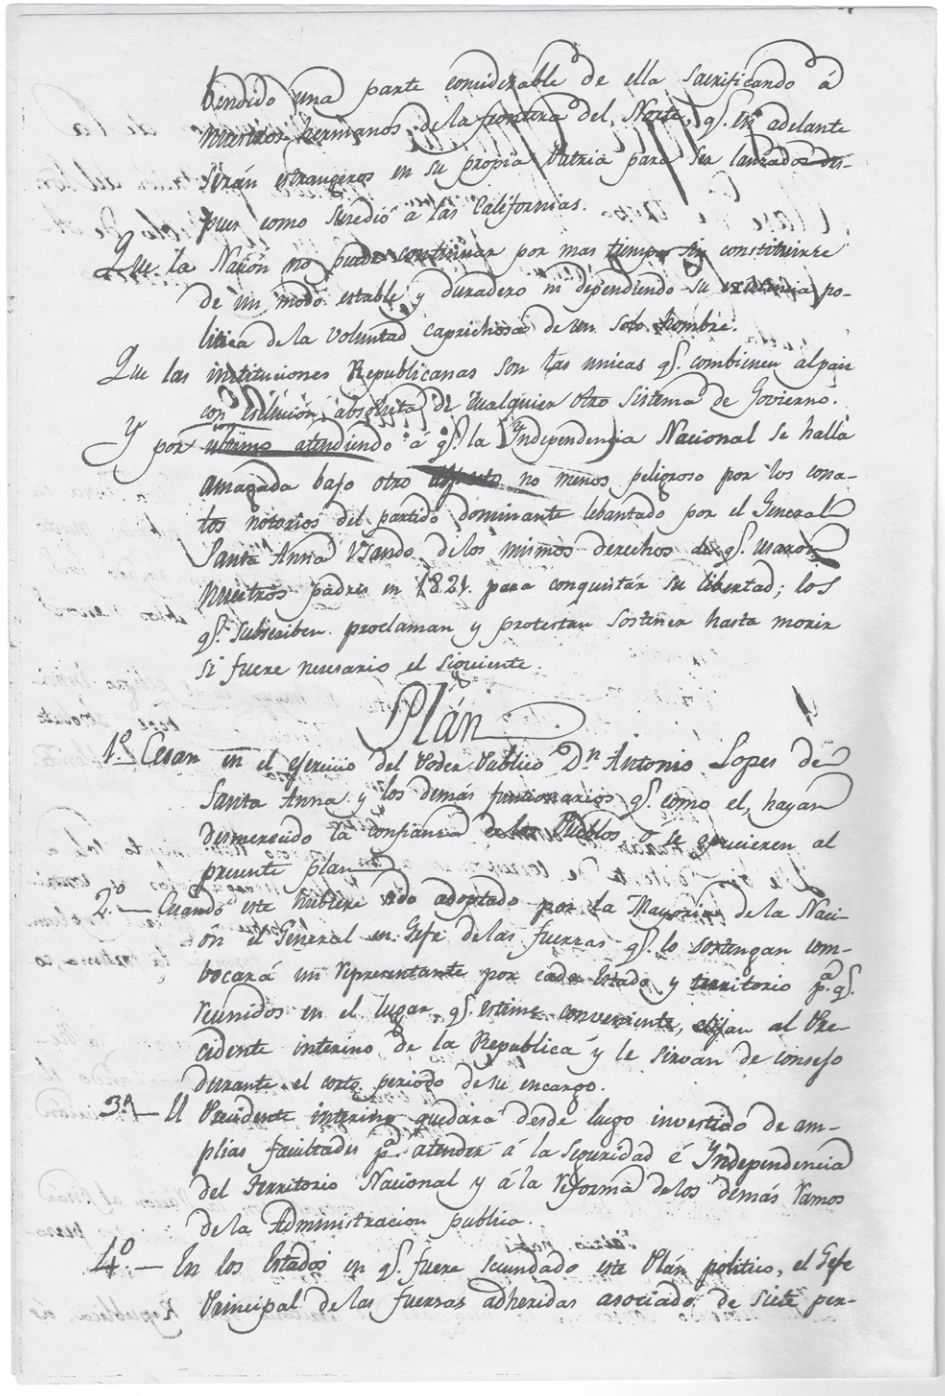 bendido una parte conciderable de ella sacrificando á
nuestros hermanos de la frontera del Norte, q.e en adelante
serán estrangeros en su propia Patria para ser lanzados des-
pues como suredió á las Californias.
Que la Nación no puede continuar por mas tiempo sin constituirse
de un modo estable y duradero ni dependiendo su existencia po-
litica de la voluntad caprichosa de un solo hombre.
Que las instituciones Republicanas son las unicas q.e combienen al pais
con esclución absoluta de cualquier otro sistema de Govierno.
Y por ultimo atendiendo á q.e la Independencia Nacional se halla
amagada bajo otro aspecto no menos peligroso por los cona-
tos notorios del partido dominante lebantado por el General
Santa Anna Usando de los mismos derechos de q.e usaron
nuestros padres en 1821. para conquistár su libertad; los
q.e subscriben proclaman y protestan sostener hasta morir
si fuere nesesario el siguiente.
Plán
1.º Cesan en el ejercicio del Poder Público Dn Antonio Lopes de
Santa Anna y los demás funcionarios q.e como el, hayan
desmerecido la confianza de los Pueblos o se opucieren al
presente plan
2.º — Cuando este hubiere sido adoptado por la Mayoria de la Naci-
ón el General en Gefe de las fuerzas q.e lo sostengan com-
bocará un representante por cada Estado y territorio p.a q.e
reunidos en el lugar q.e estime conveniente, elijan al Pre-
cidente interino de la Republica y le sirvan de consejo
durante el corto periodo de su encargo.
3.º — El Precidente interino quedará desde luego investido de am-
plias facultades p.a atender á la Seguridad é Independencia
del Territorio Nacional y á la reforma de los demás ramos
de la Administracion publica.
4.º — En los Estados en q.e fuere secundado este Plán politico, el Gefe
Principal de las fuerzas adheridas asociado de siete per-